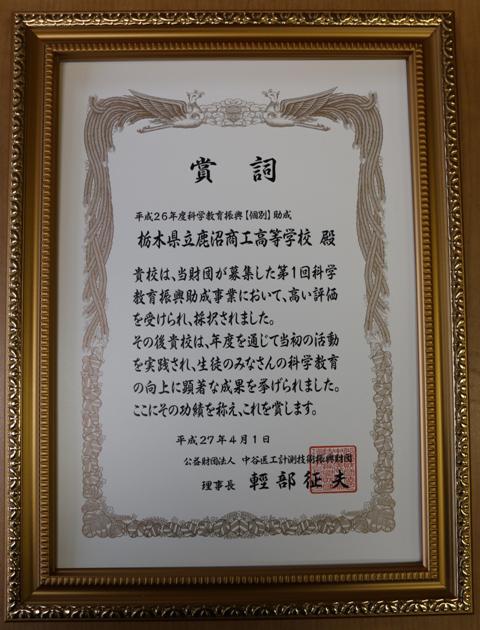 賞詞
平成26年度科学教育振興【個別】助成
栃木県立鹿沼商工高等学校 殿
貴校は、当財団が募集した第1回科学
教育振興助成事業において、高い評価
を受けられ、採択されました。
その後貴校は、年度を通じて当初の活動
を実践され、生徒のみなさんの科学教育
の向上に顕著な成果を挙げられました。
ここにその功績を称え、これを賞します。
平成27年4月1日
公益財団法人 中谷医工計測技術振興財団
理事長 輕部征夫